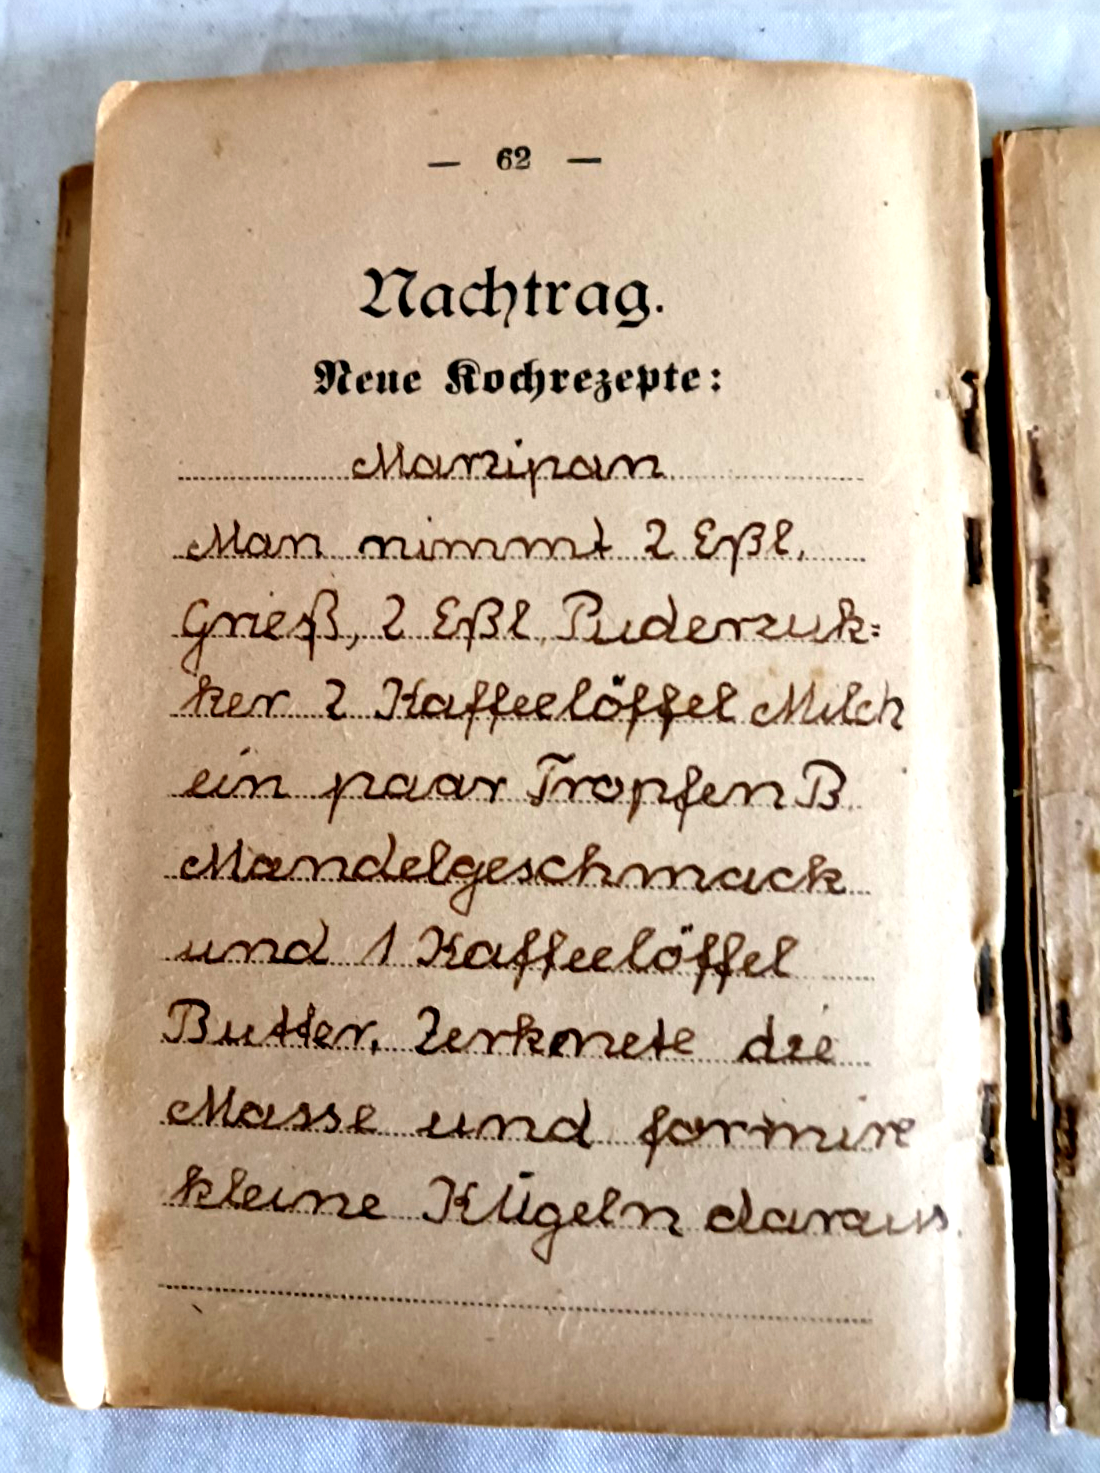 — 62 —
Nachtrag.
Neue Kochrezepte:
Marzipan
Man nimmt 2 Eßl.
Grieß, 2 Eßl. Puderzuk=
ker 2 Kaffeelöffel Milch
ein paar Tropfen B
Mandelgeschmack
und 1 Kaffeelöffel
Butter. Zerknete die
Masse und formire
kleine Kügeln daraus.